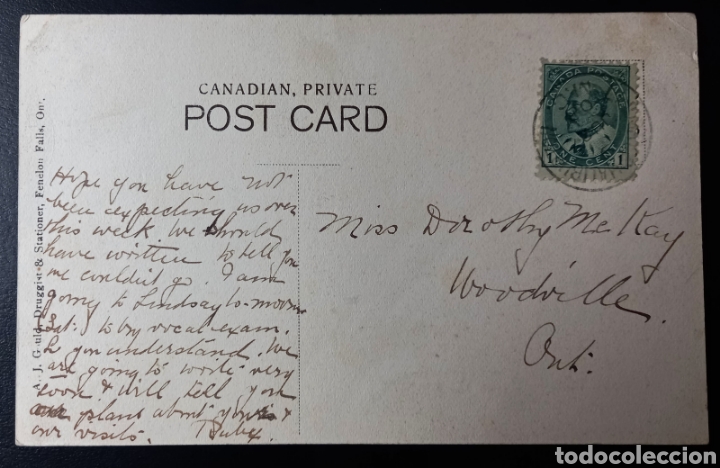 CANADIAN, PRIVATE
POST CARD
A. J. Gould, Druggist & Stationer, Fenelon Falls, Ont.
CANADA POSTAGE
1 ONE CENT 1
Hope you have not
been expecting us over
this week. We should
have written to tell you
we couldn't go. I am
going to Lindsay to-morrow
(Sat.) to try vocal exam.
you understand. We
are going to write very
soon & will tell you
plans about your &
our visits. Ruby.
Miss Dorothy McKay
Woodville
Ont.
todocoleccion
todocoleccion.net